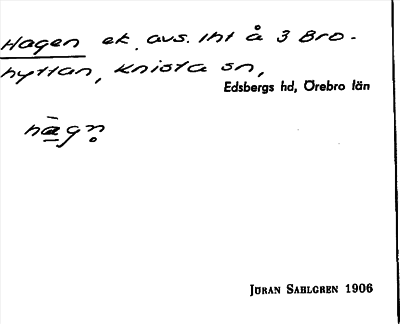 Hagen ek. avs. lht å 3 Bro-
hyttan, Knista sn,
Edsbergs hd, Örebro län
hàgn̥
Jöran Sahlgren 1906